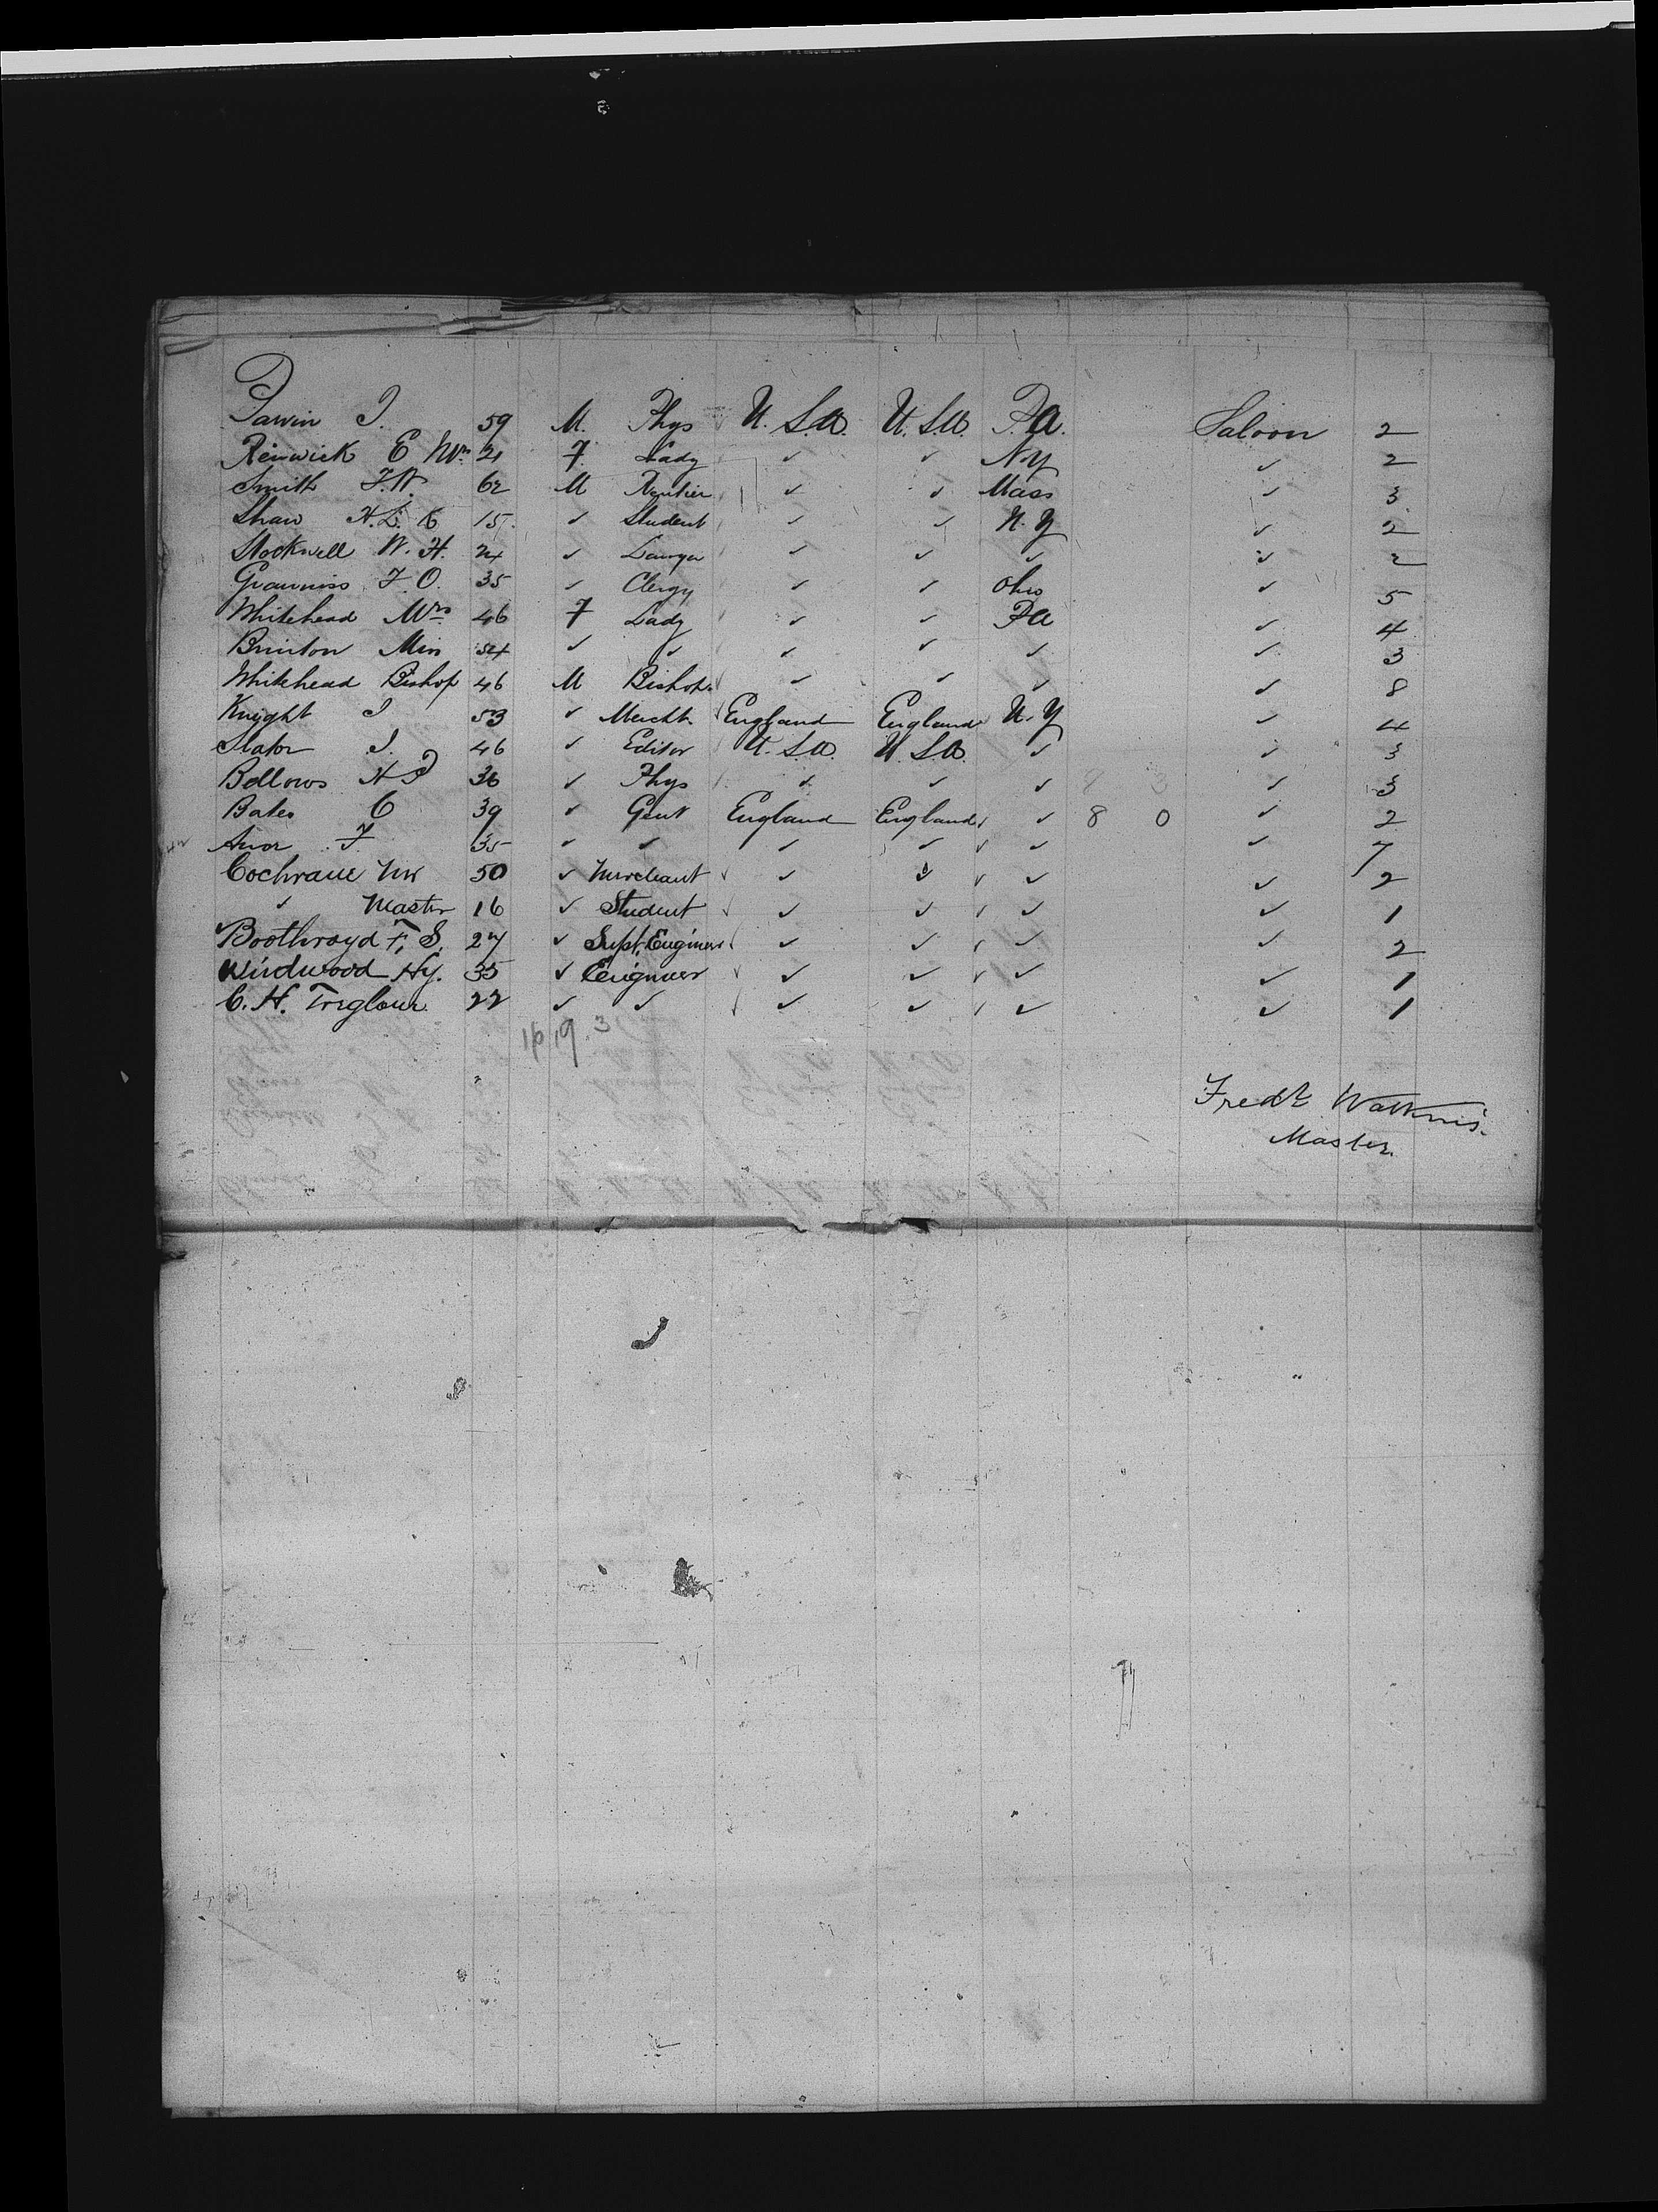 Darwin J. 59 M. Phys U.S.A. U.S.A. P.A. Saloon 2
Renwick E Mrs 21 F. Lady ✓ ✓ N.Y ✓ 2
Smith F.W. 62 M Rentier ✓ ✓ Mass ✓ 3
Shaw H.L.K 15 ✓ Student ✓ ✓ N.Y ✓ 2
Stockwell W.H. 24 ✓ Lawyer ✓ ✓ ✓ ✓ 2
F.O. 35 ✓ Clergy ✓ ✓ Ohio ✓ 5
Whitehead Mrs 46 F Lady ✓ ✓ Pa ✓ 4
Brinton Miss 54 ✓ ✓ ✓ ✓ ✓ ✓ 3
Whitehead Bishop 46 M Bishop ✓ ✓ ✓ ✓ 8
Knight J 53 ✓ Mercht. England England N.Y ✓ 4
Slator J. 46 ✓ Editor U.S.A. U.S.A. ✓ ✓ 3
Bellows H P 36 ✓ Phys ✓ ✓ ✓ ✓ 3
Bates C 39 ✓ Gent England England ✓ 8 0 ✓ 2
F. 35 ✓ ✓ ✓ ✓ ✓ ✓ 7
Cochrane Mr 50 ✓ Merchant ✓ ✓ ✓ ✓ 2
✓ Master 16 ✓ Student ✓ ✓ ✓ ✓ 1
Boothroyd F. S. 27 ✓ Supt. Engineer ✓ ✓ ✓ ✓ 2
Windwood Hy. 35 ✓ Engineer ✓ ✓ ✓ ✓ 1
C. H. Treglown 22 ✓ ✓ ✓ ✓ ✓ ✓ 1
16 19 3
Fredk Watkins.
Master.